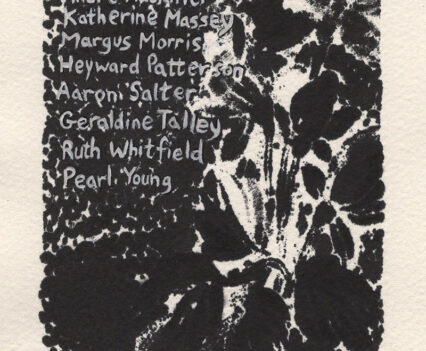 Katherine Massey
Margus Morris
Heyward Patterson
Aaron Salter
Geraldine Talley
Ruth Whitfield
Pearl Young